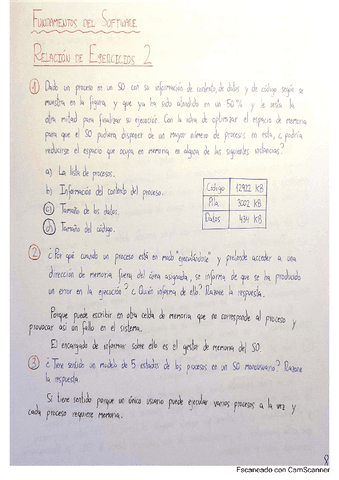 FUNDAMENTOS DEL SOFTWARE
RELACIÓN DE EJERCICIOS 2
① Dado un proceso en un SO con su información de contexto, de datos y de código según se
muestra en la figura y que ya ha sido atendido en un 50% y le resta la
otra mitad para finalizar su ejecución. Con la idea de optimizar el espacio de memoria
para que el SO pudiera disponer de un mayor número de procesos en esta, ¿podría
reducirse el espacio que ocupa en memoria en alguna de las siguientes instancias?
a) La lista de procesos.
b) Información del contexto del proceso.
c) Tamaño de los datos.
d) Tamaño del código.
Código 12922 KB
Pila 3002 KB
Datos 434 KB
② ¿Por qué cuando un proceso está en modo "ejecutándose" y pretende acceder a una
dirección de memoria fuera del área asignada, se informa de que se ha producido
un error en la ejecución? ¿Quién informa de ello? Razone la respuesta.
Porque puede escribir en otra celda de memoria que no corresponde al proceso y
provocar así un fallo en el sistema.
El encargado de informar sobre ello es el gestor de memoria del SO
③ ¿Tiene sentido un modelo de 5 estados de los procesos en un SO monousuario? Razone
la respuesta.
Si tiene sentido porque un único usuario puede ejecutar varios procesos a la vez y
cada proceso requiere memoria.
8
Escaneado con CamScanner